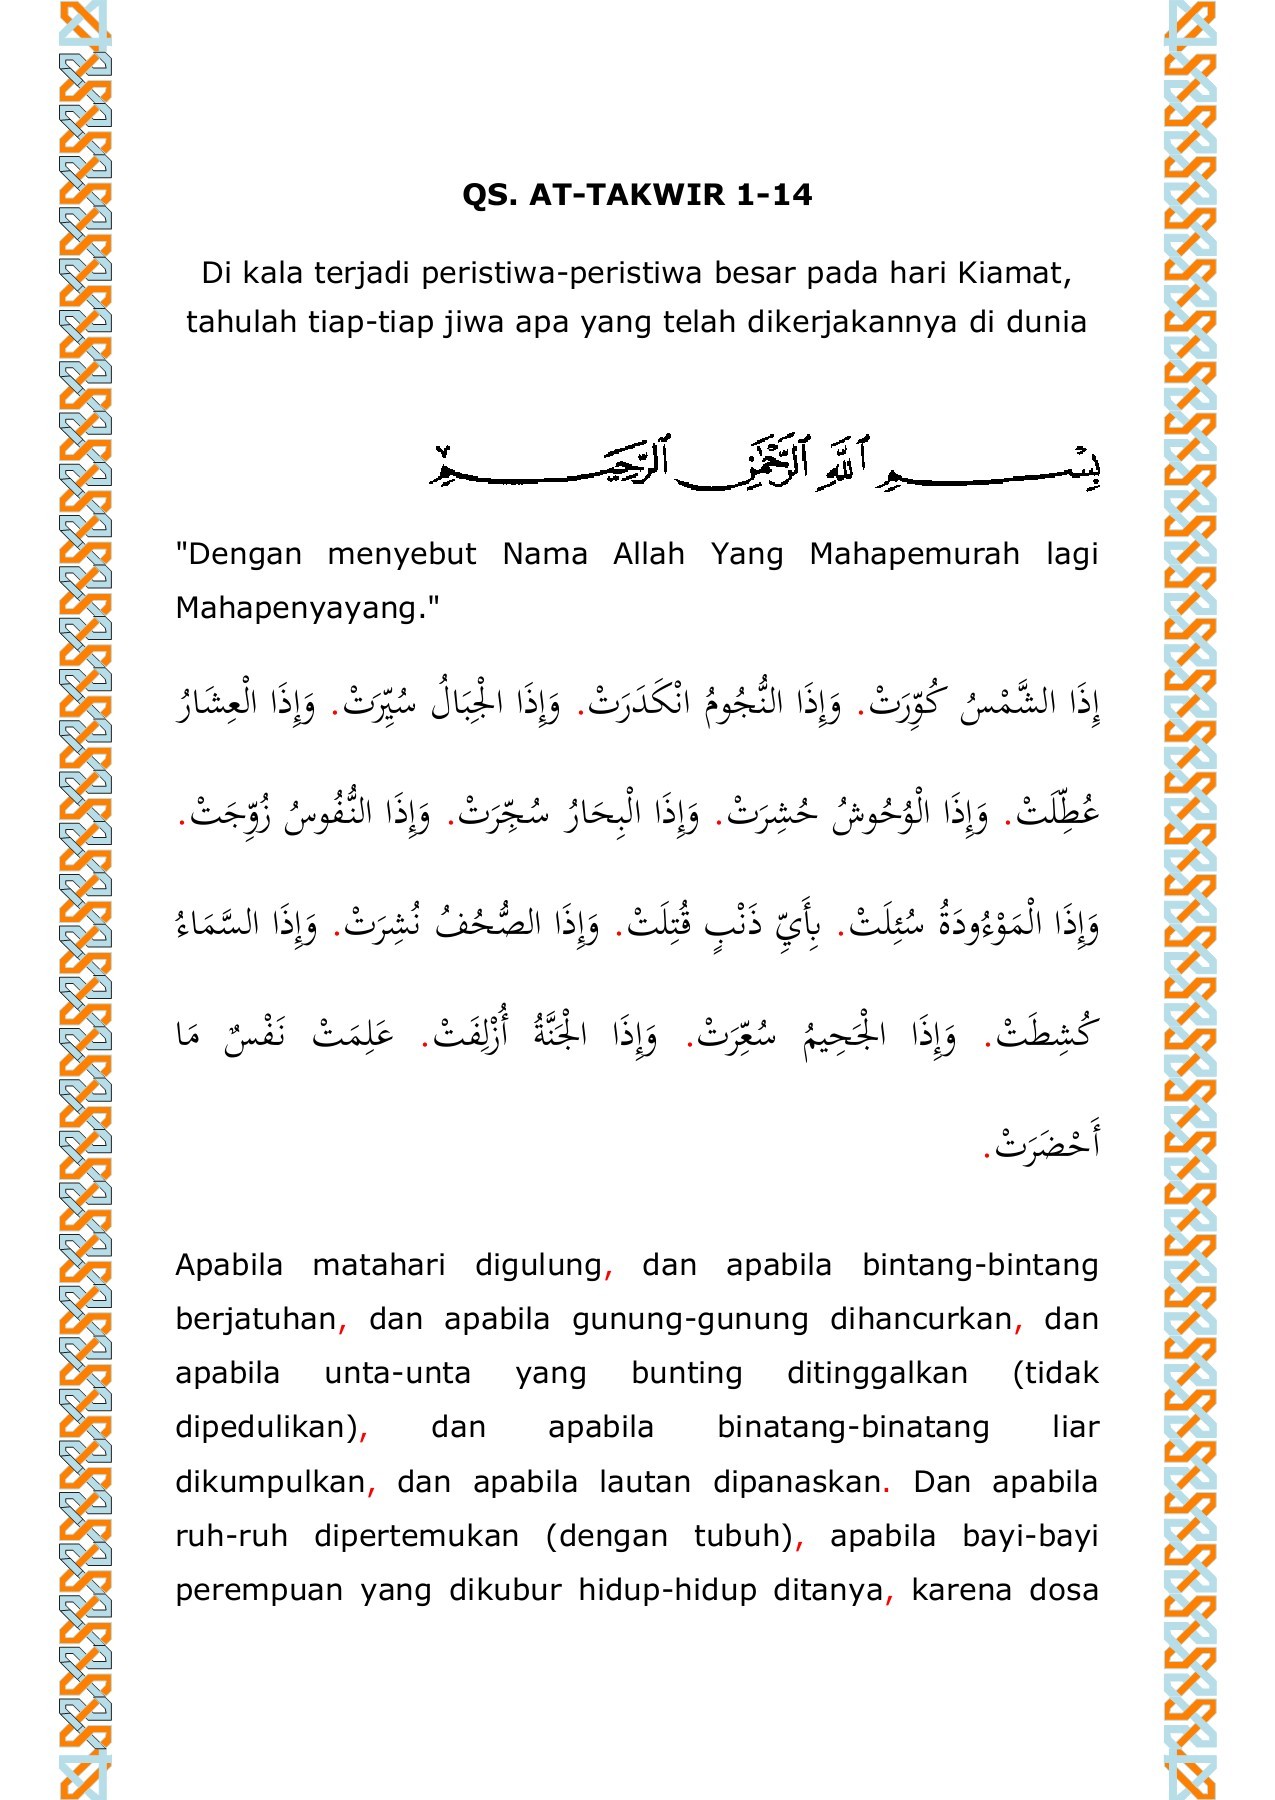 QS. AT-TAKWIR 1-14
Di kala terjadi peristiwa-peristiwa besar pada hari Kiamat,
tahulah tiap-tiap jiwa apa yang telah dikerjakannya di dunia
بِسْمِ ٱللَّهِ ٱلرَّحْمَٰنِ ٱلرَّحِيمِ
"Dengan menyebut Nama Allah Yang Mahapemurah lagi
Mahapenyayang."
إِذَا الشَّمْسُ كُوِّرَتْ. وَإِذَا النُّجُومُ انْكَدَرَتْ. وَإِذَا الْجِبَالُ سُيِّرَتْ. وَإِذَا الْعِشَارُ
عُطِّلَتْ. وَإِذَا الْوُحُوشُ حُشِرَتْ. وَإِذَا الْبِحَارُ سُجِّرَتْ. وَإِذَا النُّفُوسُ زُوِّجَتْ.
وَإِذَا الْمَوْءُودَةُ سُئِلَتْ. بِأَيِّ ذَنْبٍ قُتِلَتْ. وَإِذَا الصُّحُفُ نُشِرَتْ. وَإِذَا السَّمَاءُ
كُشِطَتْ. وَإِذَا الْجَحِيمُ سُعِّرَتْ. وَإِذَا الْجَنَّةُ أُزْلِفَتْ. عَلِمَتْ نَفْسٌ مَا
أَحْضَرَتْ.
Apabila matahari digulung, dan apabila bintang-bintang
berjatuhan, dan apabila gunung-gunung dihancurkan, dan
apabila unta-unta yang bunting ditinggalkan (tidak
dipedulikan), dan apabila binatang-binatang liar
dikumpulkan, dan apabila lautan dipanaskan. Dan apabila
ruh-ruh dipertemukan (dengan tubuh), apabila bayi-bayi
perempuan yang dikubur hidup-hidup ditanya, karena dosa